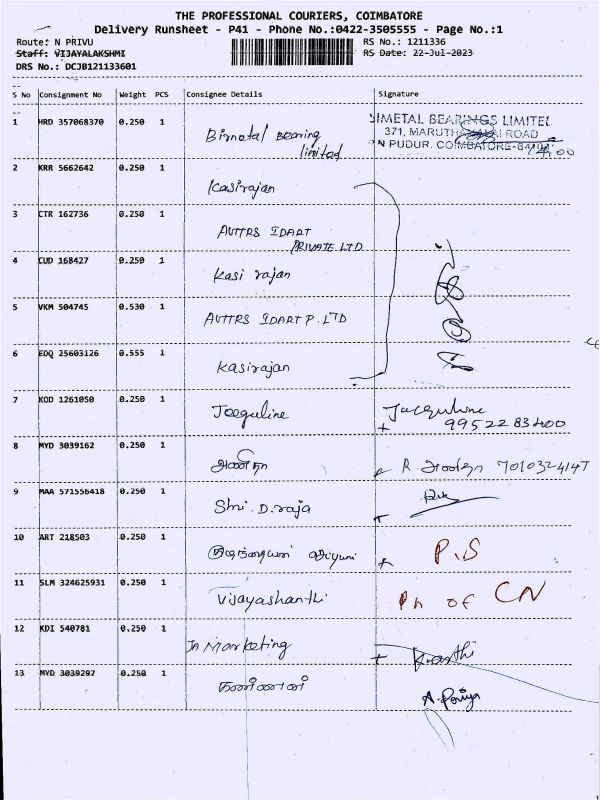 THE PROFESSIONAL COURIERS, COIMBATORE
Delivery Runsheet - P41 - Phone No.:0422-3505555 - Page No.:1
Route: N PRIVU RS No.: 1211336
Staff: VIJAYALAKSHMI RS Date: 22-Jul-2023
DRS No.: DCJB121133601
S No Consignment No Weight PCS Consignee Details Signature
1 HRD 357068370 0.250 1 Bimetal Bearing limited
BIMETAL BEARINGS LIMITED
371, MARUTHAMALAI ROAD
N PUDUR. COIMBATORE-641041
2 KRR 5662642 0.250 1 Kasirajan
3 CTR 162736 0.250 1 AVTTRS IDART
PRIVATE LTD
4 CUD 168427 0.250 1 Kasi rajan
5 VKM 504745 0.530 1 AVTTRS IDART P. LTD
6 EDQ 25603126 0.555 1 Kasirajan
7 KOD 1261050 0.250 1 Jeeguline Jacquline
9952283400
8 MYD 3039162 0.250 1 R. 7010324147
9 MAA 571556418 0.250 1 Shri. D. raja
10 ART 218503 0.250 1 P.S
11 SLM 324625931 0.250 1 Vijayashanthi Ph of CN
12 KDI 540781 0.250 1 Jn Marketing
13 MYD 3039297 0.250 1 கண்ணன் A. Priya